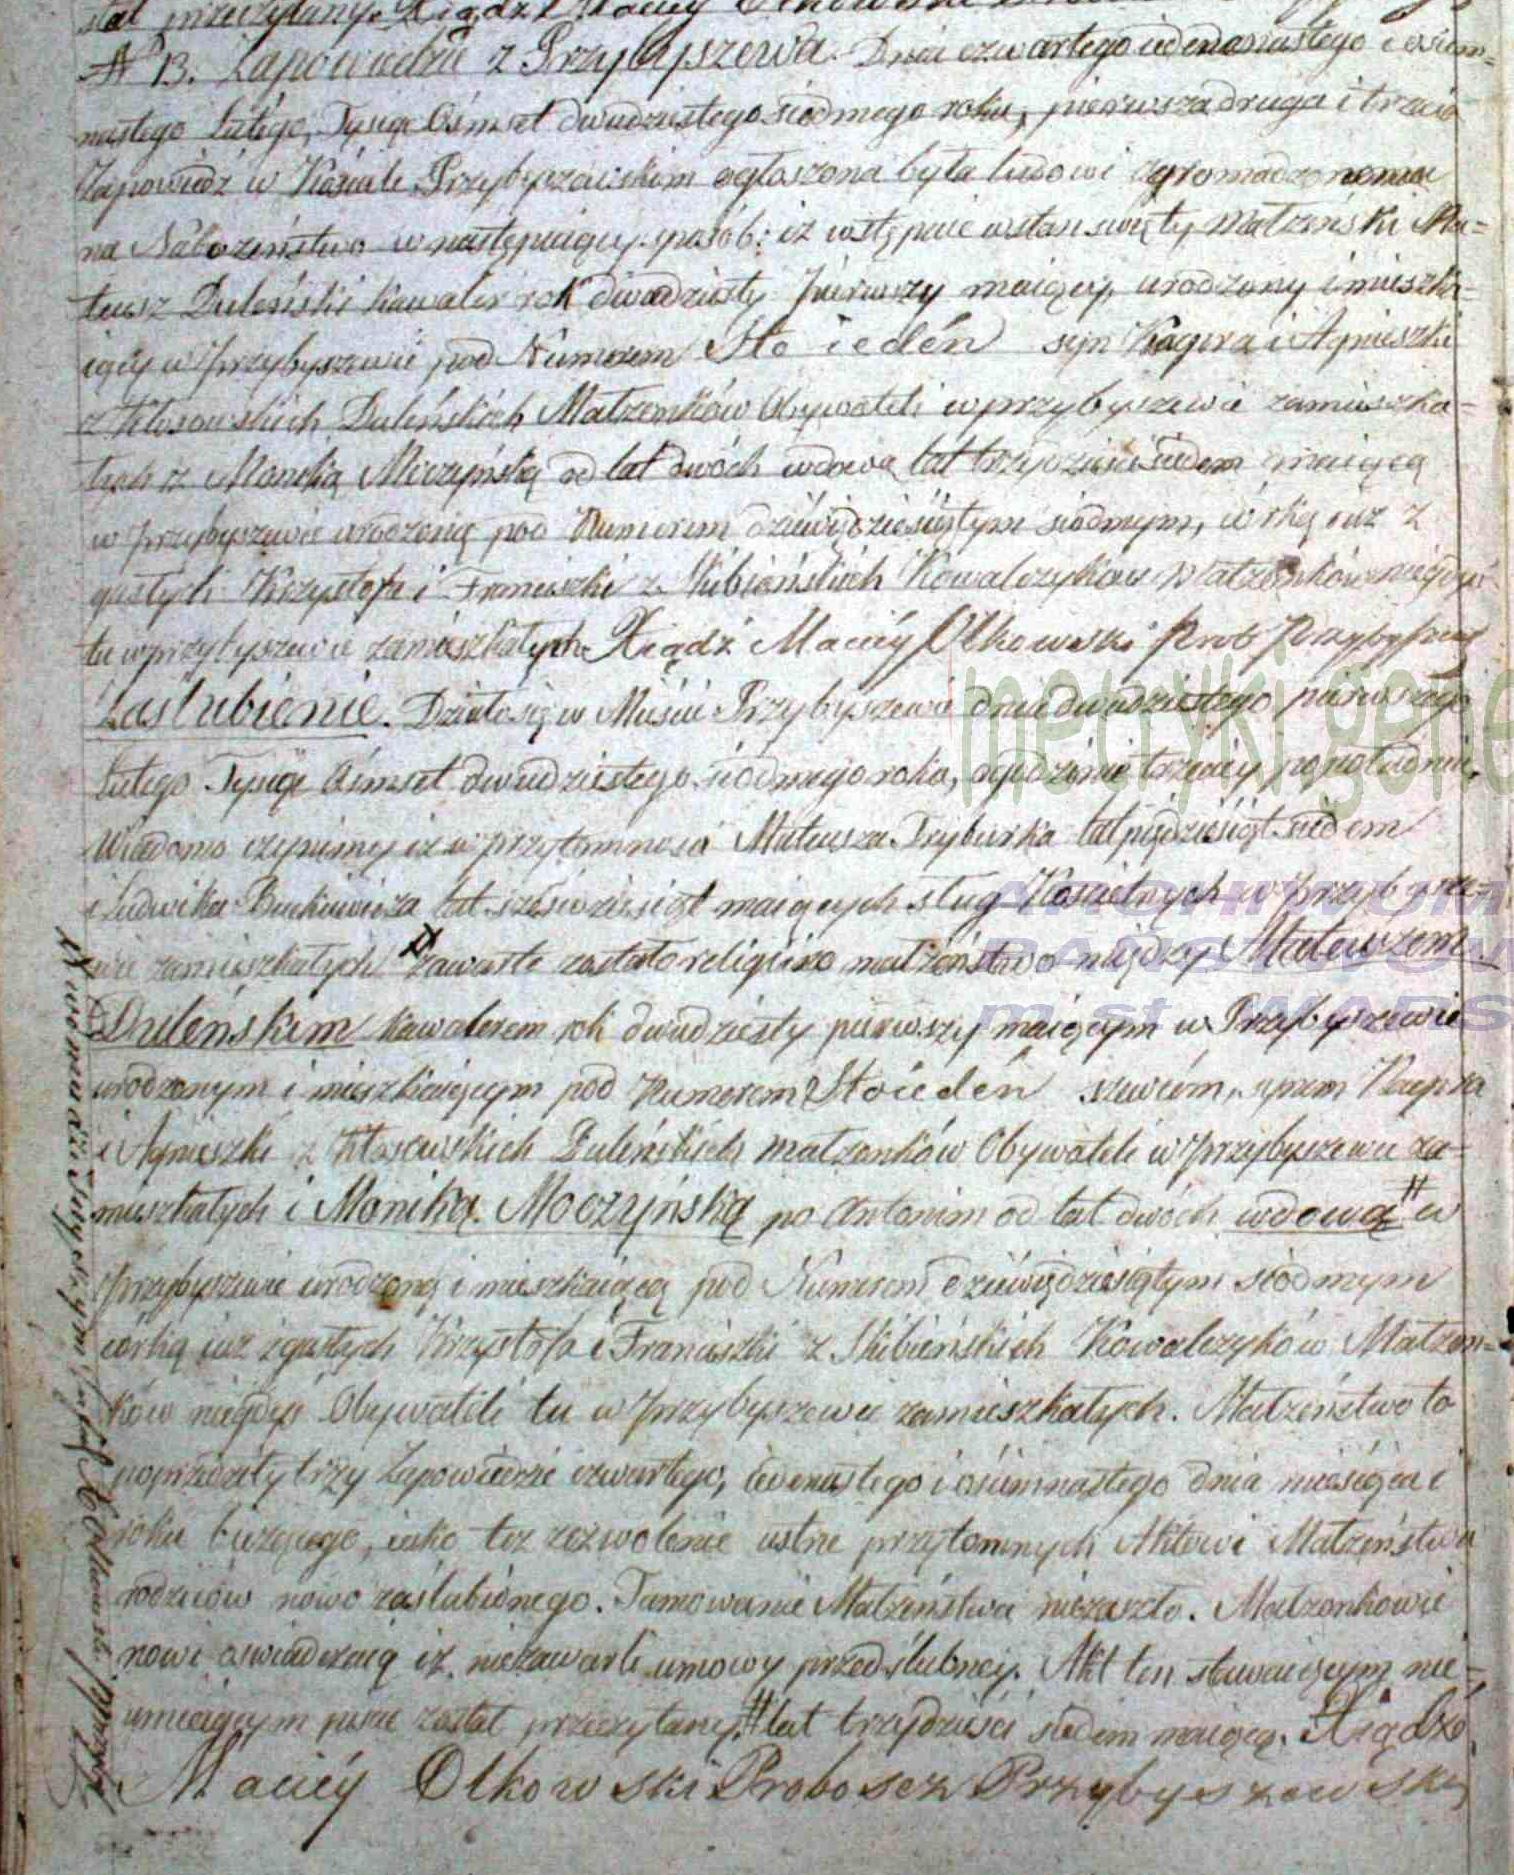 stał przeczytany. Xiądz Maciéy Olkowski
№ 13. Zapowiedzie z Przybyszewa. Dnia czwartego iedenastego i ośm-
nastego Lutego, Tysiąc Ośmset dwudziestego siodmego roku, pierwsza druga i trzecia
Zapowiedź w Kościele Przybyszewskim ogłoszona była ludowi zgromadzonemu
na Nabożeństwo w następuiący sposób: iż wstępuie w stan święty Małżeński Ma-
teusz Duleński kawaler rok dwudziesty pierwszy maiący, urodzony i mieszka-
iący w Przybyszewie pod Numerem Sto ieden syn Kacpra i Agnieszki
z Kłosowskich Duleńskich Małżonków Obywateli w Przybyszewie zamieszka-
łych z Moniką Moczyńską od lat dwóch wdową lat trzydzieści siedem maiącą
w Przybyszewie urodzoną pod Numerem dziewiędziesiątym siodmym, córką iuż z
gasłych Krzysztofa i Franciszki z Skibieńskich Kowalczyków Małżonków niegdyś
tu w Przybyszewie zamieszkałych Xiądz Maciéy Olkowski Prob Przybyszew
Zaslubienie. Działo się w Mieście Przybyszewie dnia dwudziestego pierwszego
Lutego Tysiąc Ośmset dwudziestego siódmego roku, o godzinie trzeciey po południu,
Wiadomo czyniemy iż w przytomności Mateusza Tryburka lat pięćdziesiąt siedem
i Ludwika Bućkiewicza lat sześćdziesiąt maiących sług Kościelnych w Przybysze-
wie zamieszkałych zawarte zostało religiine małżeństwo między Mateuszem
Duleńskim kawalerem rok dwudziesty pierwszy maiącym w Przybyszewie
urodzonym i mieszkaiącym pod Numerem Sto ieden szewcem, synem Kacpra
i Agnieszki z Kłosowskich Duleńskich małżonków Obywateli w Przybyszewie za-
mieszkałych i Moniką Moczyńską po Antonim od lat dwóch wdową # w
Przybyszewie urodzoną i mieszkaiącą pod Numerem dziewiędziesiątym siódmym
córką iuż zgasłych Krzysztofa i Franciszki z Skibieńskich Kowalczyków Małżon-
ków niegdyś Obywateli tu w Przybyszewie zamieszkałych. Małżeństwo to
poprzedziły trzy Zapowiedzie czwartego, iedenastego i ośiemnastego dnia miesiąca i
roku bieżącego, iako też zezwolenie ustne przytomnych Aktowi Małżeństwa
rodziców nowo zaślubionego. Tamowanie Małżeństwa niezaszło. Małżonkowie
nowi oświadczaią iż niezawarli umowy przedślubney. Akt ten stawaiącym nie
umieiącym pisać został przeczytany. # lat trzydzieści siedem maiącą. Xiądz
Maciéy Olkowski Proboscz Przybyszewski
metryki gene
ARCHIWUM
PAŃSTWOW
m st WARS